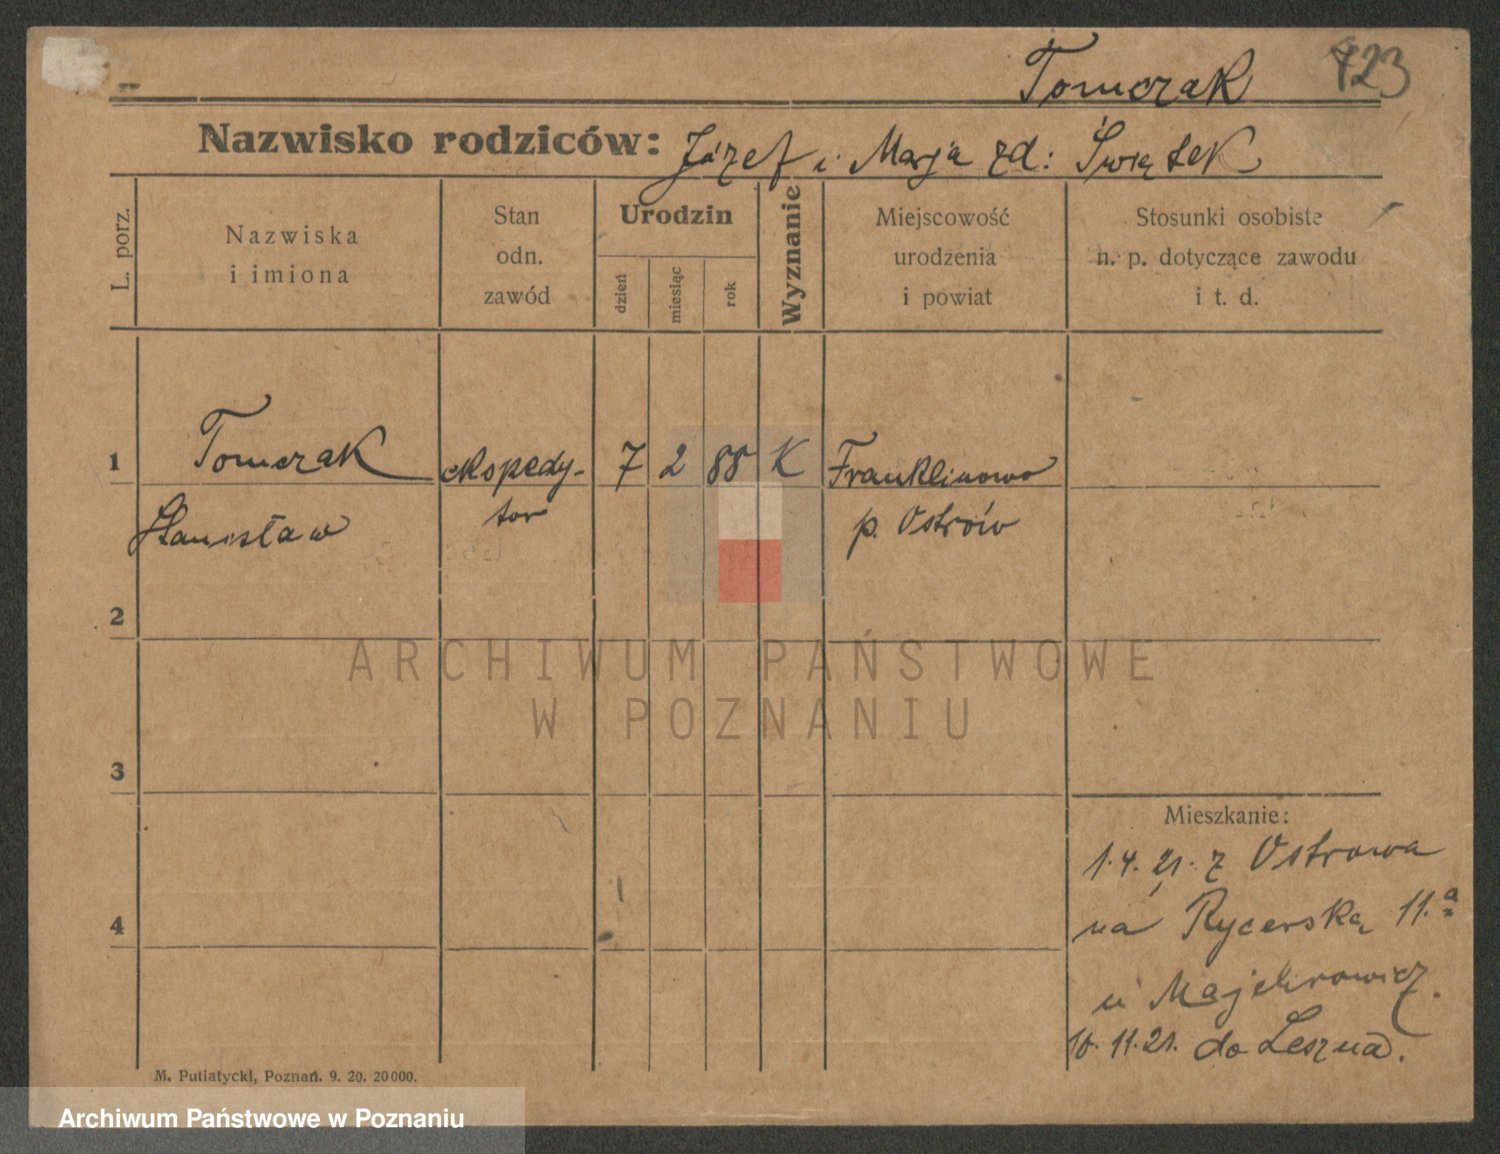 Tomczak 723
Nazwisko rodziców: Józef i Marja zd: Świątek
L. porz.
Nazwiska
i imiona
Stan
odn.
zawód
Urodzin
dzień
miesiąc
rok
Wyznanie
Miejscowość
urodzenia
i powiat
Stosunki osobiste
n. p. dotyczące zawodu
i t. d.
1 Tomczak ekspedy- 7 2 88 K Franklinowo
Stanisław tor p. Ostrów
2
ARCHIWUM PAŃSTWOWE
W POZNANIU
3
Mieszkanie:
1.4.21. z Ostrowa
4
na Rycerską 11.a
u
10.11.21. do Leszna.
M. Putiatycki, Poznań. 9. 20. 20000.
Archiwum Państwowe w Poznaniu